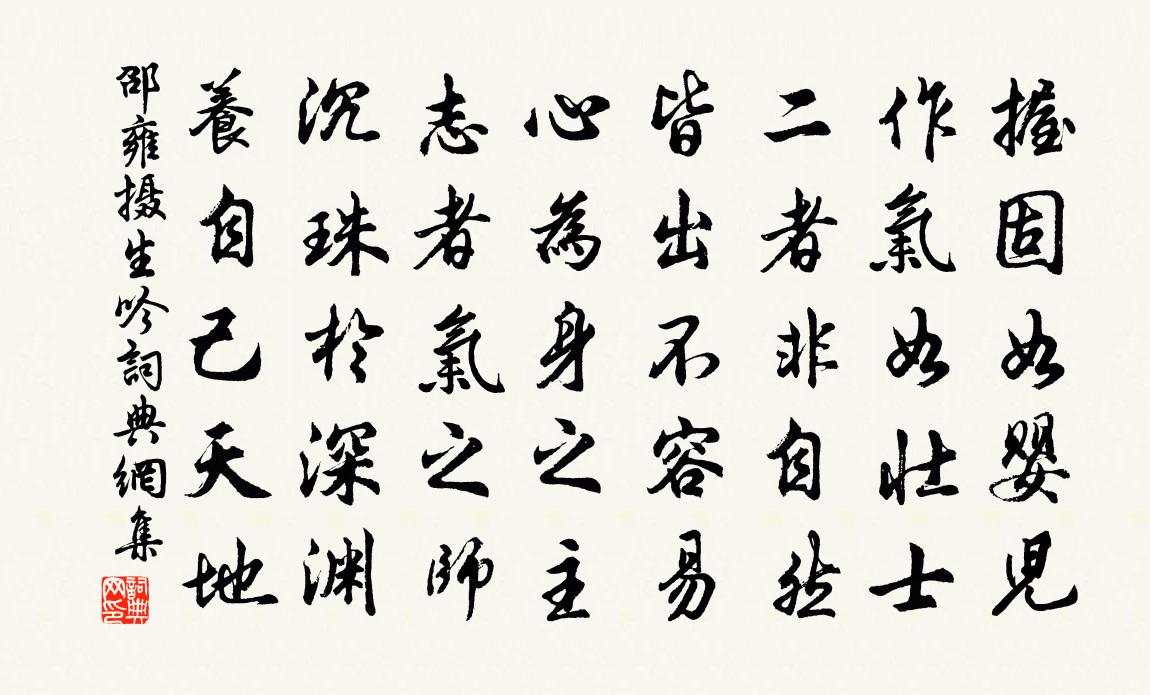 握固如嬰兒
作氣如壯士
二者非自然
皆出不容易
心為身之主
志者氣之師
沉珠於深渊
養自己天地
邵雍摄生吟詞典網集
詞典网印